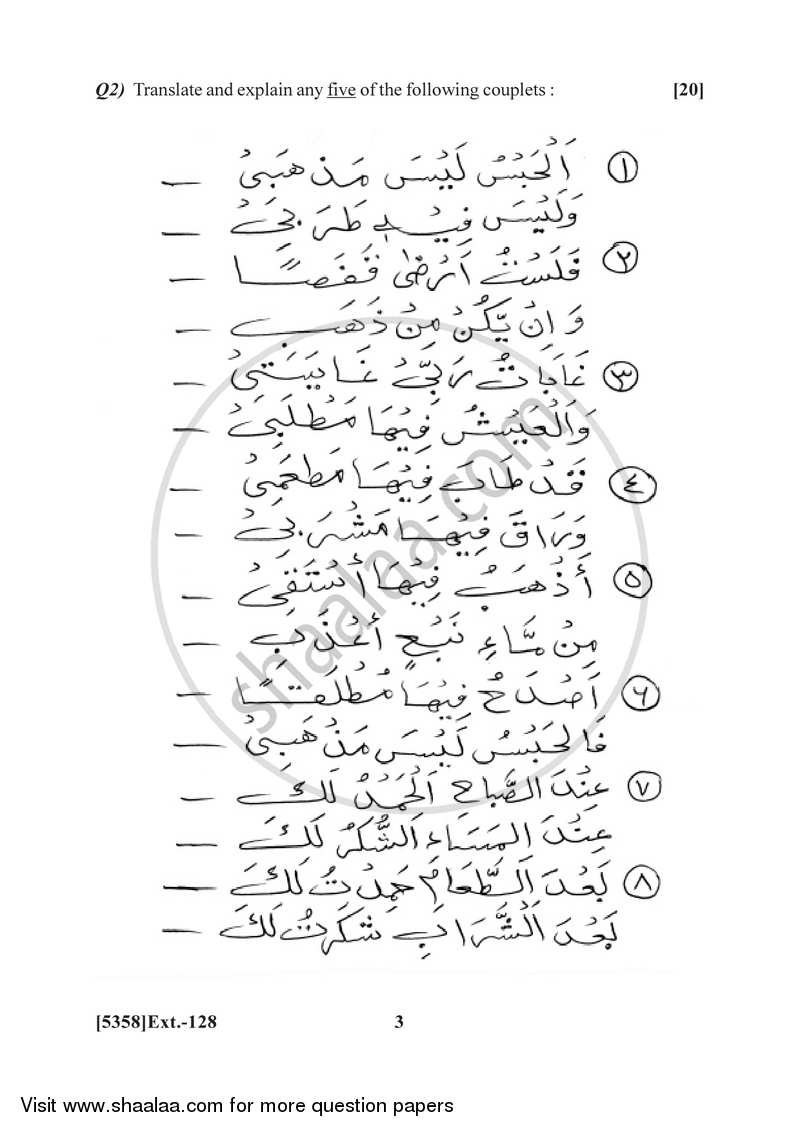 Q2) Translate and explain any five of the following couplets : [20]
١ اَلْحَبْسُ لَيْسَ مَذْهَبِىْ —
وَلَيْسَ فِيْهِ طَرَبِىْ —
٢ فَلَسْتُ اَرْضٰى قَفَصًا —
وَاِنْ يَّكُنْ مِنْ ذَهَبِ —
٣ غَابَاتُ رَبِّىْ غَايَتِىْ —
وَالْعَيْشُ فِيْهَا مَطْلَبِىْ —
٤ قَدْ طَابَ فِيْهَا مَطْعَمِىْ —
وَرَاقَ فِيْهَا مَشْرَبِىْ —
٥ أَذْهَبُ فِيْهَا أَسْتَقِىْ —
مِنْ مَّاءِ نَبْعٍ أَعْذَبِ —
٦ اَصْدَحُ فِيْهَا مُطْلَقًا —
فَالْحَبْسُ لَيْسَ مَذْهَبِىْ —
٧ عِنْدَ الصَّبَاحِ اَلْحَمْدُ لَكَ —
عِنْدَ الْمَسَاءِ اَلشُّكْرُ لَكَ —
٨ بَعْدَ اَلطَّعَامِ حَمِدْتُ لَكَ —
بَعْدَ اَلشَّرَابِ شَكَرْتُ لَكَ —
shaalaa.com
[5358]Ext.-128 3
Visit www.shaalaa.com for more question papers